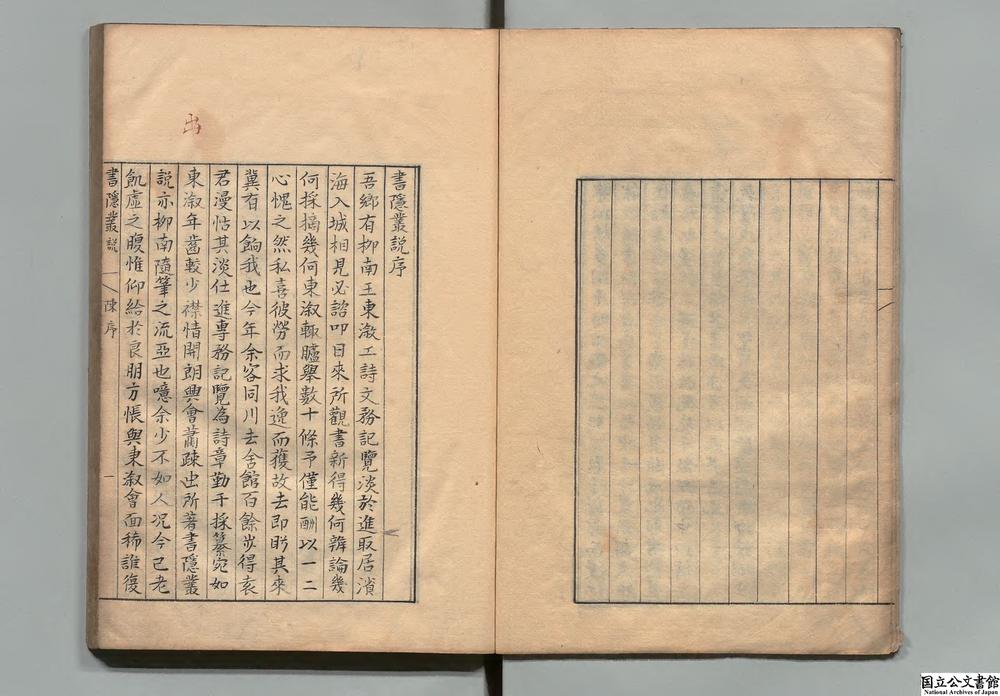 書隱叢說序
吾鄉有柳南王東漵工詩文務記覽淡於進取居濱
海入城相見必詣叩日來所觀書新得幾何辨論幾
何採摘幾何東漵輒臚舉數十條予僅能酬以一二
心愧之然私喜彼勞而求我逸而獲故去即盻其來
冀有以餉我也今年余客同川去舍館百餘步得袁
君漫恬其淡仕進專務記覽為詩章勤于採纂宛如
東漵年齒較少襟情開朗興會蕭疎出所著書隱叢
說亦柳南隨筆之流亞也噫余少不如人况今已老
飢虛之腹惟仰給於良朋方悵與東漵會面稀誰復
書隱叢說
陳序
一
国立公文書館
National Archives of Japan